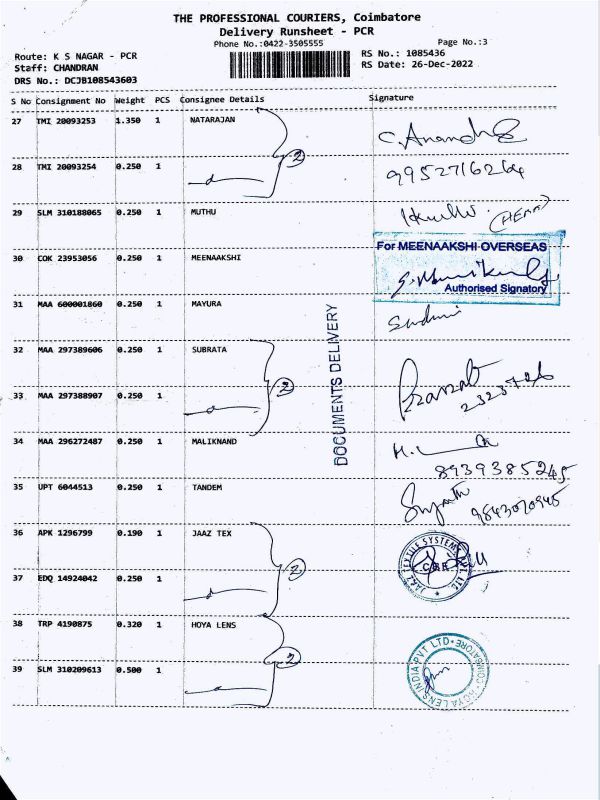 THE PROFESSIONAL COURIERS, Coimbatore
Delivery Runsheet - PCR
Phone No.:0422-3505555
Page No.:3
Route: K S NAGAR - PCR
RS No.: 1085436
Staff: CHANDRAN
RS Date: 26-Dec-2022
DRS No.: DCJB108543603
S No Consignment No Weight PCS Consignee Details Signature
27 TMI 20093253 1.350 1 NATARAJAN
2
28 TMI 20093254 0.250 1
29 SLM 310188065 0.250 1 MUTHU
For MEENAAKSHI OVERSEAS
30 COK 23953056 0.250 1 MEENAAKSHI
Authorised Signatory
31 MAA 600001860 0.250 1 MAYURA
DOCUMENTS DELIVERY
32 MAA 297389606 0.250 1 SUBRATA
2
33 MAA 297388907 0.250 1
34 MAA 296272487 0.250 1 MALIKNAND
8939385245
35 UPT 6044513 0.250 1 TANDEM
9843070945
36 APK 1296799 0.190 1 JAAZ TEX
JAAZ TEXTILE SYSTEMS PVT LTD
CBE
2
37 EDQ 14924042 0.250 1
38 TRP 4190875 0.320 1 HOYA LENS
2
HOYA LENS INDIA PVT LTD COIMBATORE
39 SLM 310209613 0.500 1